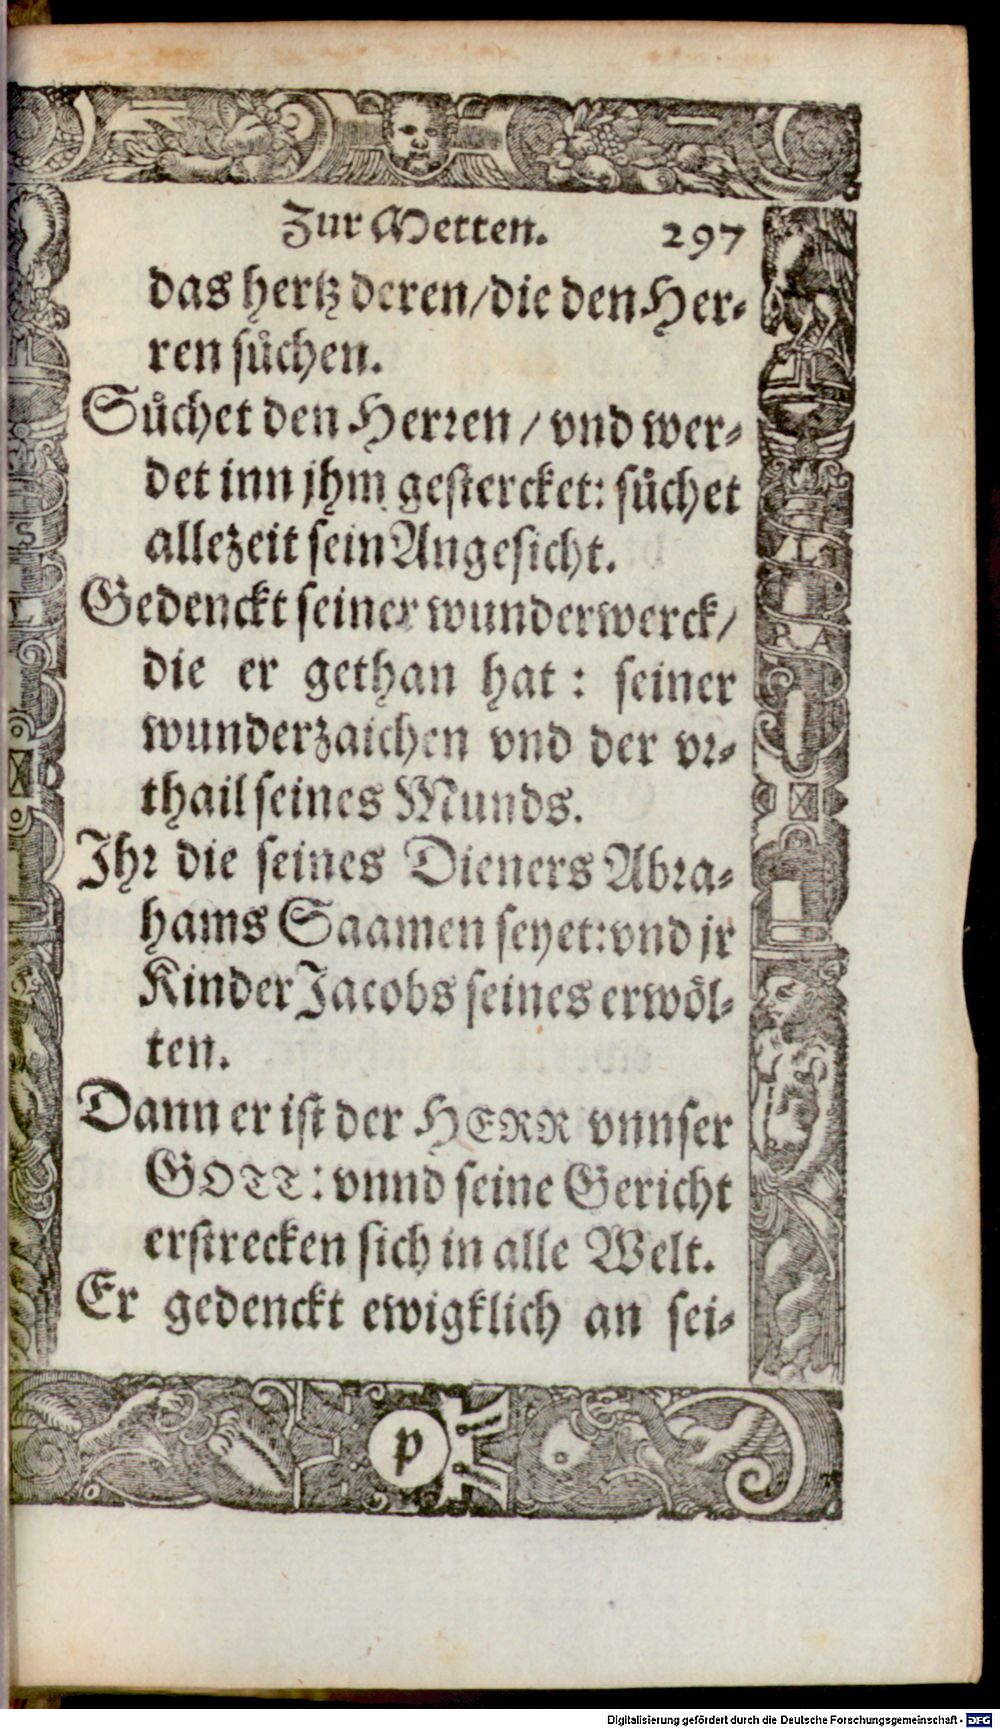 Zur Metten. 297
das hertz deren/die den Her-
ren sůchen.
Sůchet den Herren / vnd wer-
det inn jhm gestercket: sůchet
allezeit sein Angesicht.
Gedenckt seiner wunderwerck/
die er gethan hat : seiner
wunderzaichen vnd der vr-
thail seines Munds.
Ihr die seines Dieners Abra-
hams Saamen seyet:vnd jr
Kinder Jacobs seines erwöl-
ten.
Dann er ist der HERR vnnser
GOTT: vnnd seine Gericht
erstrecken sich in alle Welt.
Er gedenckt ewigklich an sei-
p
S
L
L
RA
Digitalisierung gefördert durch die Deutsche Forschungsgemeinschaft - DFG